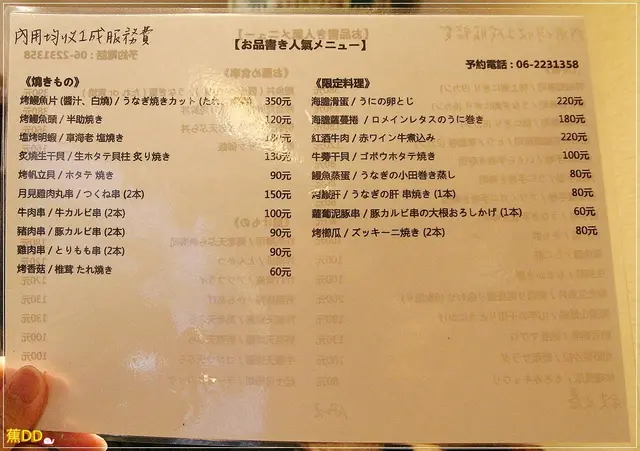 內用均收1成服務費
【お品書き人氣メニュー】
予約電話：06-2231358
《燒きもの》
烤鰻魚片(醬汁、白燒) / うなぎ焼きカット(たれ、 350元
烤鰻魚頭 / 半助焼き 120元
塩烤明蝦 / 車海老 塩焼き
炙燒生干貝 / 生ホタテ貝柱 炙り焼き 130元
烤帆立貝 / ホタテ 焼き 90元
月見雞肉丸串 / つくね串 (2本) 150元
牛肉串 / 牛カルビ串 (2本) 100元
豬肉串 / 豚カルビ串 (2本) 90元
雞肉串 / とりもも串 (2本) 90元
烤香菇 / 椎茸 たれ焼き 60元
《限定料理》
海膽滑蛋 / うにの卵とじ 220元
海膽蘿蔓捲 / ロメインレタスのうに巻き 180元
紅酒牛肉 / 赤ワイン牛煮込み 220元
牛蒡干貝 / ゴボウホタテ焼き 100元
鰻魚蒸蛋 / うなぎの小田巻き蒸し 80元
烤鰻肝 / うなぎの肝 串焼き (1本) 80元
蘿蔔泥豚串 / 豚カルビ串の大根おろしかけ (1本) 60元
烤櫛瓜 / ズッキーニ焼き (2本) 80元
蕉DD